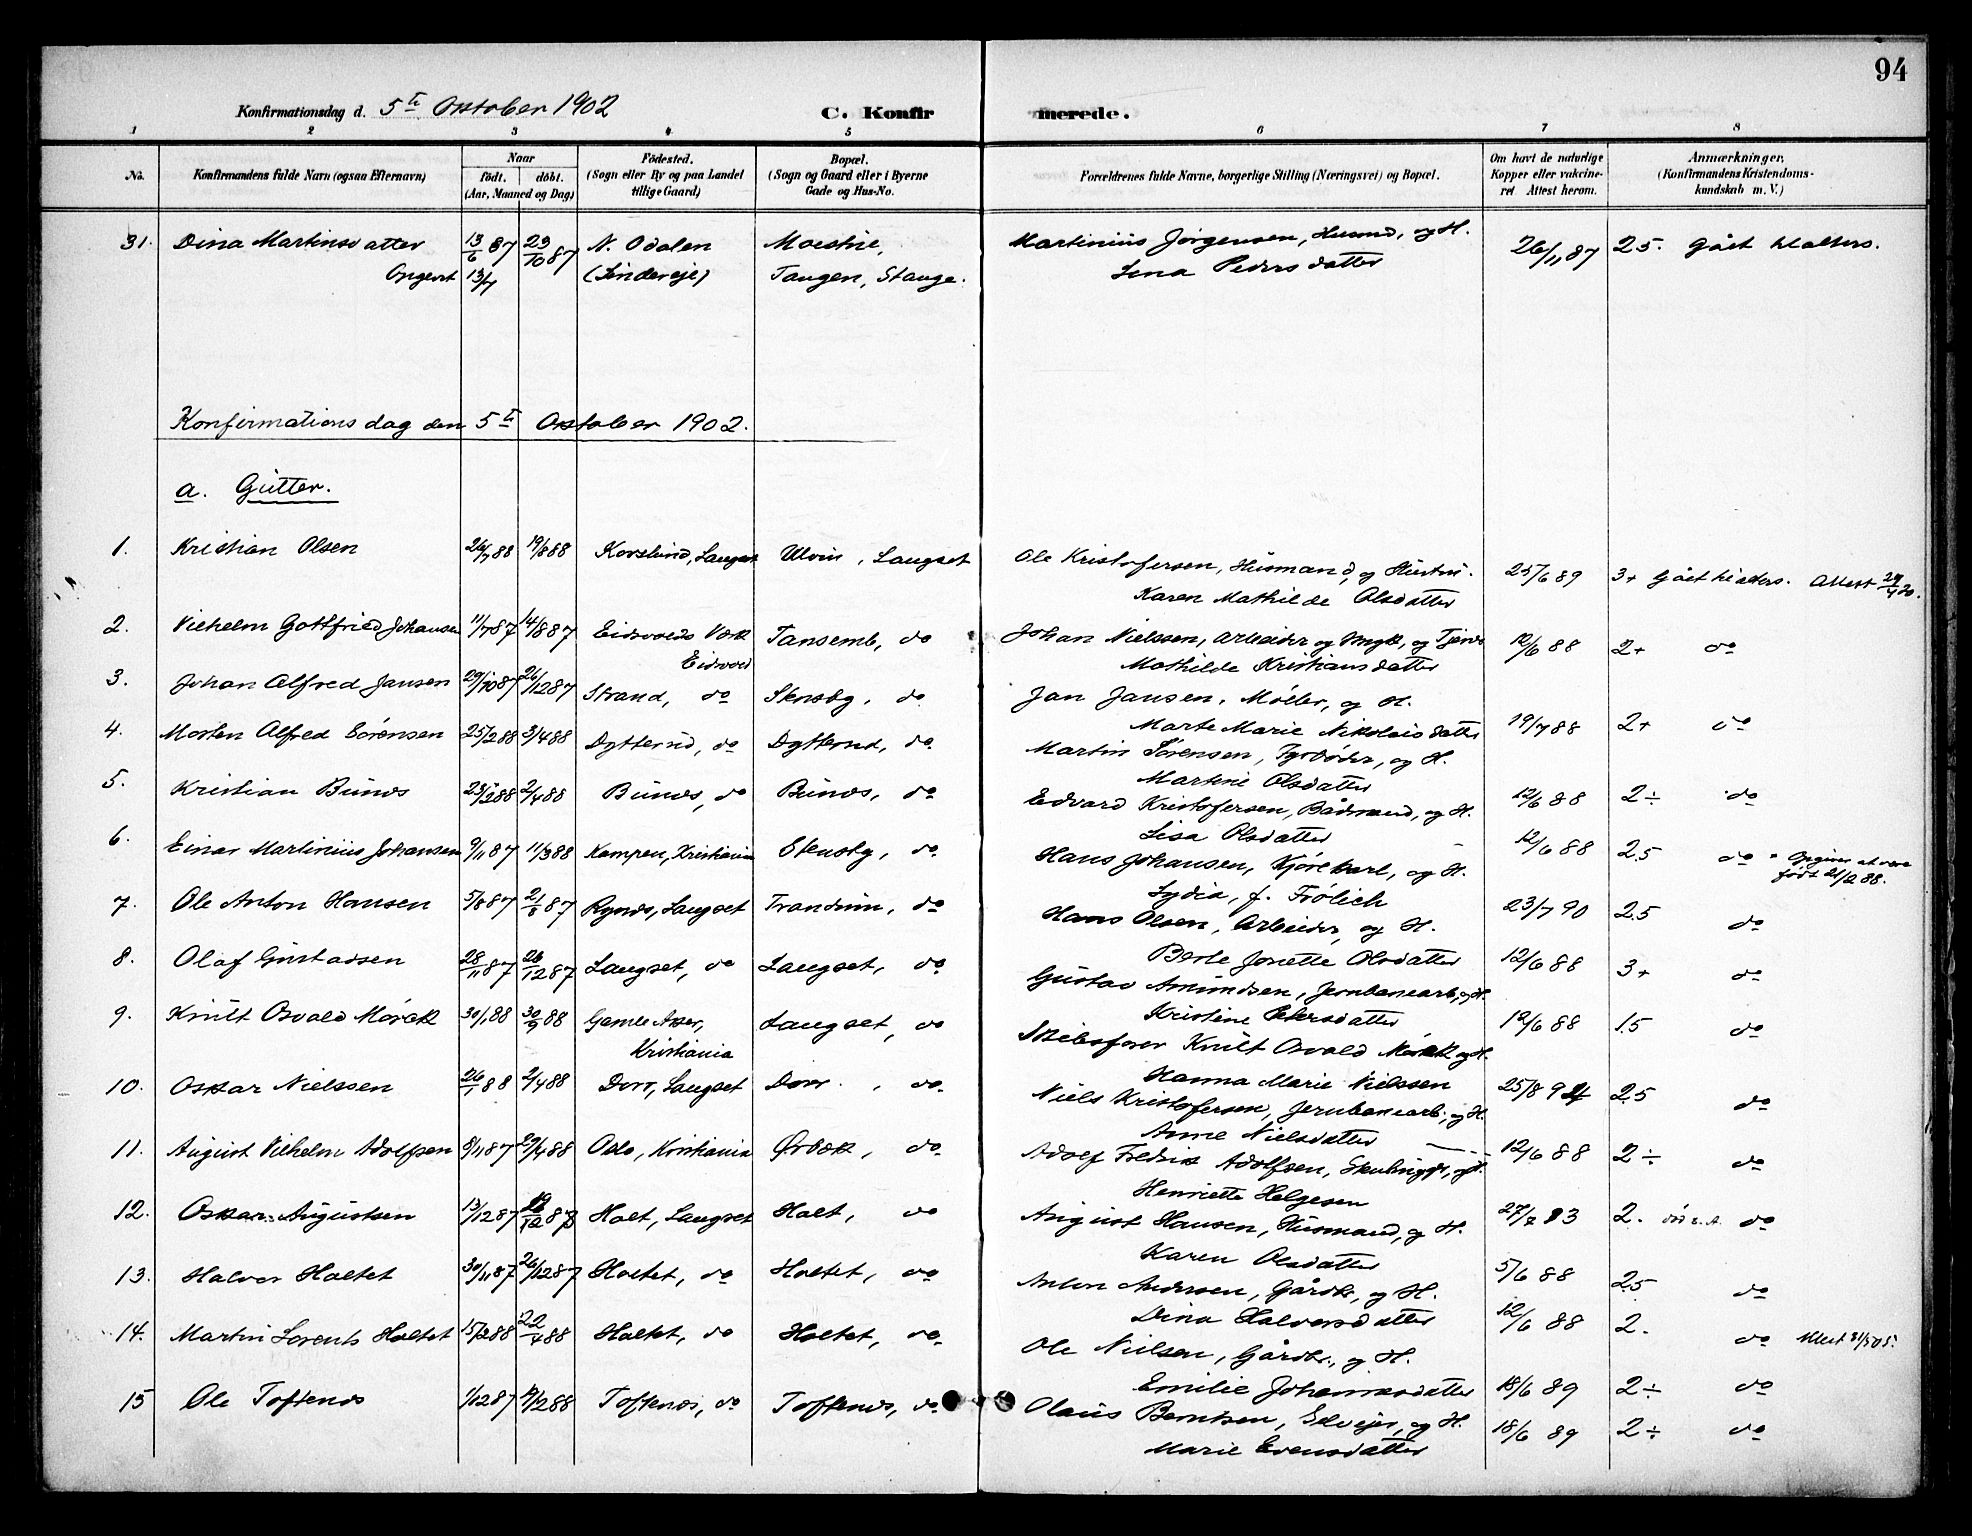 94
Konfirmationsdag d. 5te Oktober 1902 C. Konfirmerede.
1 2 3 4 5 6 7 8
No. Konfirmandens fulde Navn (ogsaa Efternavn) Naar født. døbt. (Aar, Maaned og Dag) Fødested. (Sogn eller By og paa Landet tillige Gaard) Bopæl. (Sogn og Gaard eller i Byerne Gade og Hus-No. Forældrenes fulde Navne, borgerlige Stilling (Næringsvei) og Bopæl. Om havt de naturlige Kopper eller vakcineret Attest herom. Anmærkninger, (Konfirmandens Kristendomskundskab m. V.)
31. Dina Martinsdatter 13/6 87 23/10 87 N. Odalen Moestue, Martinius Jørgensen, Husmd, og H. 26/11 87 2.5. Gået til alters.
Opgivet 13/7 (Sindereje) Tangen, Stange. Lina Pedersdatter
Konfirmationsdag den 5te Oktober 1902.
a. Gutter.
1. Kristian Olsen 26/7 88 19/8 88 Korslund, Langset Ulvin, Langset Ole Kristofersen, Husmand, og Hustru. 25/6 89 3+ Gået til alters. Attest
Karen Mathilde Olsdatter
2. Vilhelm Gottfried Johansen 11/7 87 14/8 87 Eidsvolds Værk Tansemb, do Johan Nielssen, Arbeider og 12/6 88 2+ do
Eidsvold Mathilde Kristiansdatter
3. Johan Alfred Jansen 29/10 87 26/12 87 Strand, do Stensby, do Jan Jansen, Møller, og H. 19/7 88 2+ do
Marte Marie Nikolaisdatter
4. Morten Alfred Sørensen 25/2 88 3/4 88 Dytterud, do Dytterud, do. Martin Sørensen, Fyrbøder, og H.
Martine Olsdatter
5. Kristian Bunds 23/2 88 2/4 88 Bunds, do Bunds, do Edvard Kristofersen, Bådmand, og H. 12/6 88 2÷ do
Lisa Olsdatter
6. Einar Martinius Johansen 9/11 87 11/3 88 Kampen, Kristiania Stensby, do. Hans Johansen, Kjørekarl, og H. 12/6 88 2.5 do Opgives at være født 21/2 88.
Lydia, f. Frølich
7. Ole Anton Hansen 5/8 87 21/8 87 Langset Trandum, do Hans Olsen, Arbeider, og H. 23/7 90 2.5 do
Berte Jonette Olsdatter
8. Olaf Gustavsen 28/11 87 26/12 87 Langset, do Langset, do Gustav Amundsen, Jernbanearb., og H. 12/6 88 3+ do
Kristine Petersdatter
9. Knut Osvald Mørck 30/1 88 30/9 88 Gamle Aker, Langset, do Skibsfører Knut Osvald Mørck og H. 12/6 88 1.5 do
Kristiania Hanna Marie Nielssen
10. Oskar Nielssen 26/1 88 2/4 88 Dorr, Langset Dorr, do. Niels Kristofersen, Jernbanearb., og H. 25/8 94 2.5 do
Anne Nielsdatter
11. August Vilhelm Adolfsen 8/11 87 29/4 88 Oslo, Kristiania Ørbæk, do. Adolf Fredrik Adolfsen, og H. 12/6 88 2÷ do
Henriette Helgesen
12. Oskar Augustsen 13/12 87 Holt, Langset Holt, do August Hansen, Husmand, og H. 27/7 93 2. do
Karen Olsdatter
13. Halvor Holtet 30/11 87 26/12 87 Holtet, do Holtet, do Anton Andersen, Gårdbr., og H. 5/6 88 2.5 do
Dina Halvorsdatter
14. Martin Lorents Holtet 15/2 88 22/4 88 Holtet, do Holtet, do. Ole Nielsen, Gårdbr., og H. 12/6 88 2. do Attest 31/5 05.
Emilie Johannesdatter 18/6 89 2÷ do
15 Ole Toftenæs 1/12 87 2/2 88 Toftenæs, do Toftenæs, do. Olaus Berntsen, Selveier, og H. 18/6 89 2÷ do
Marie Evensdatter